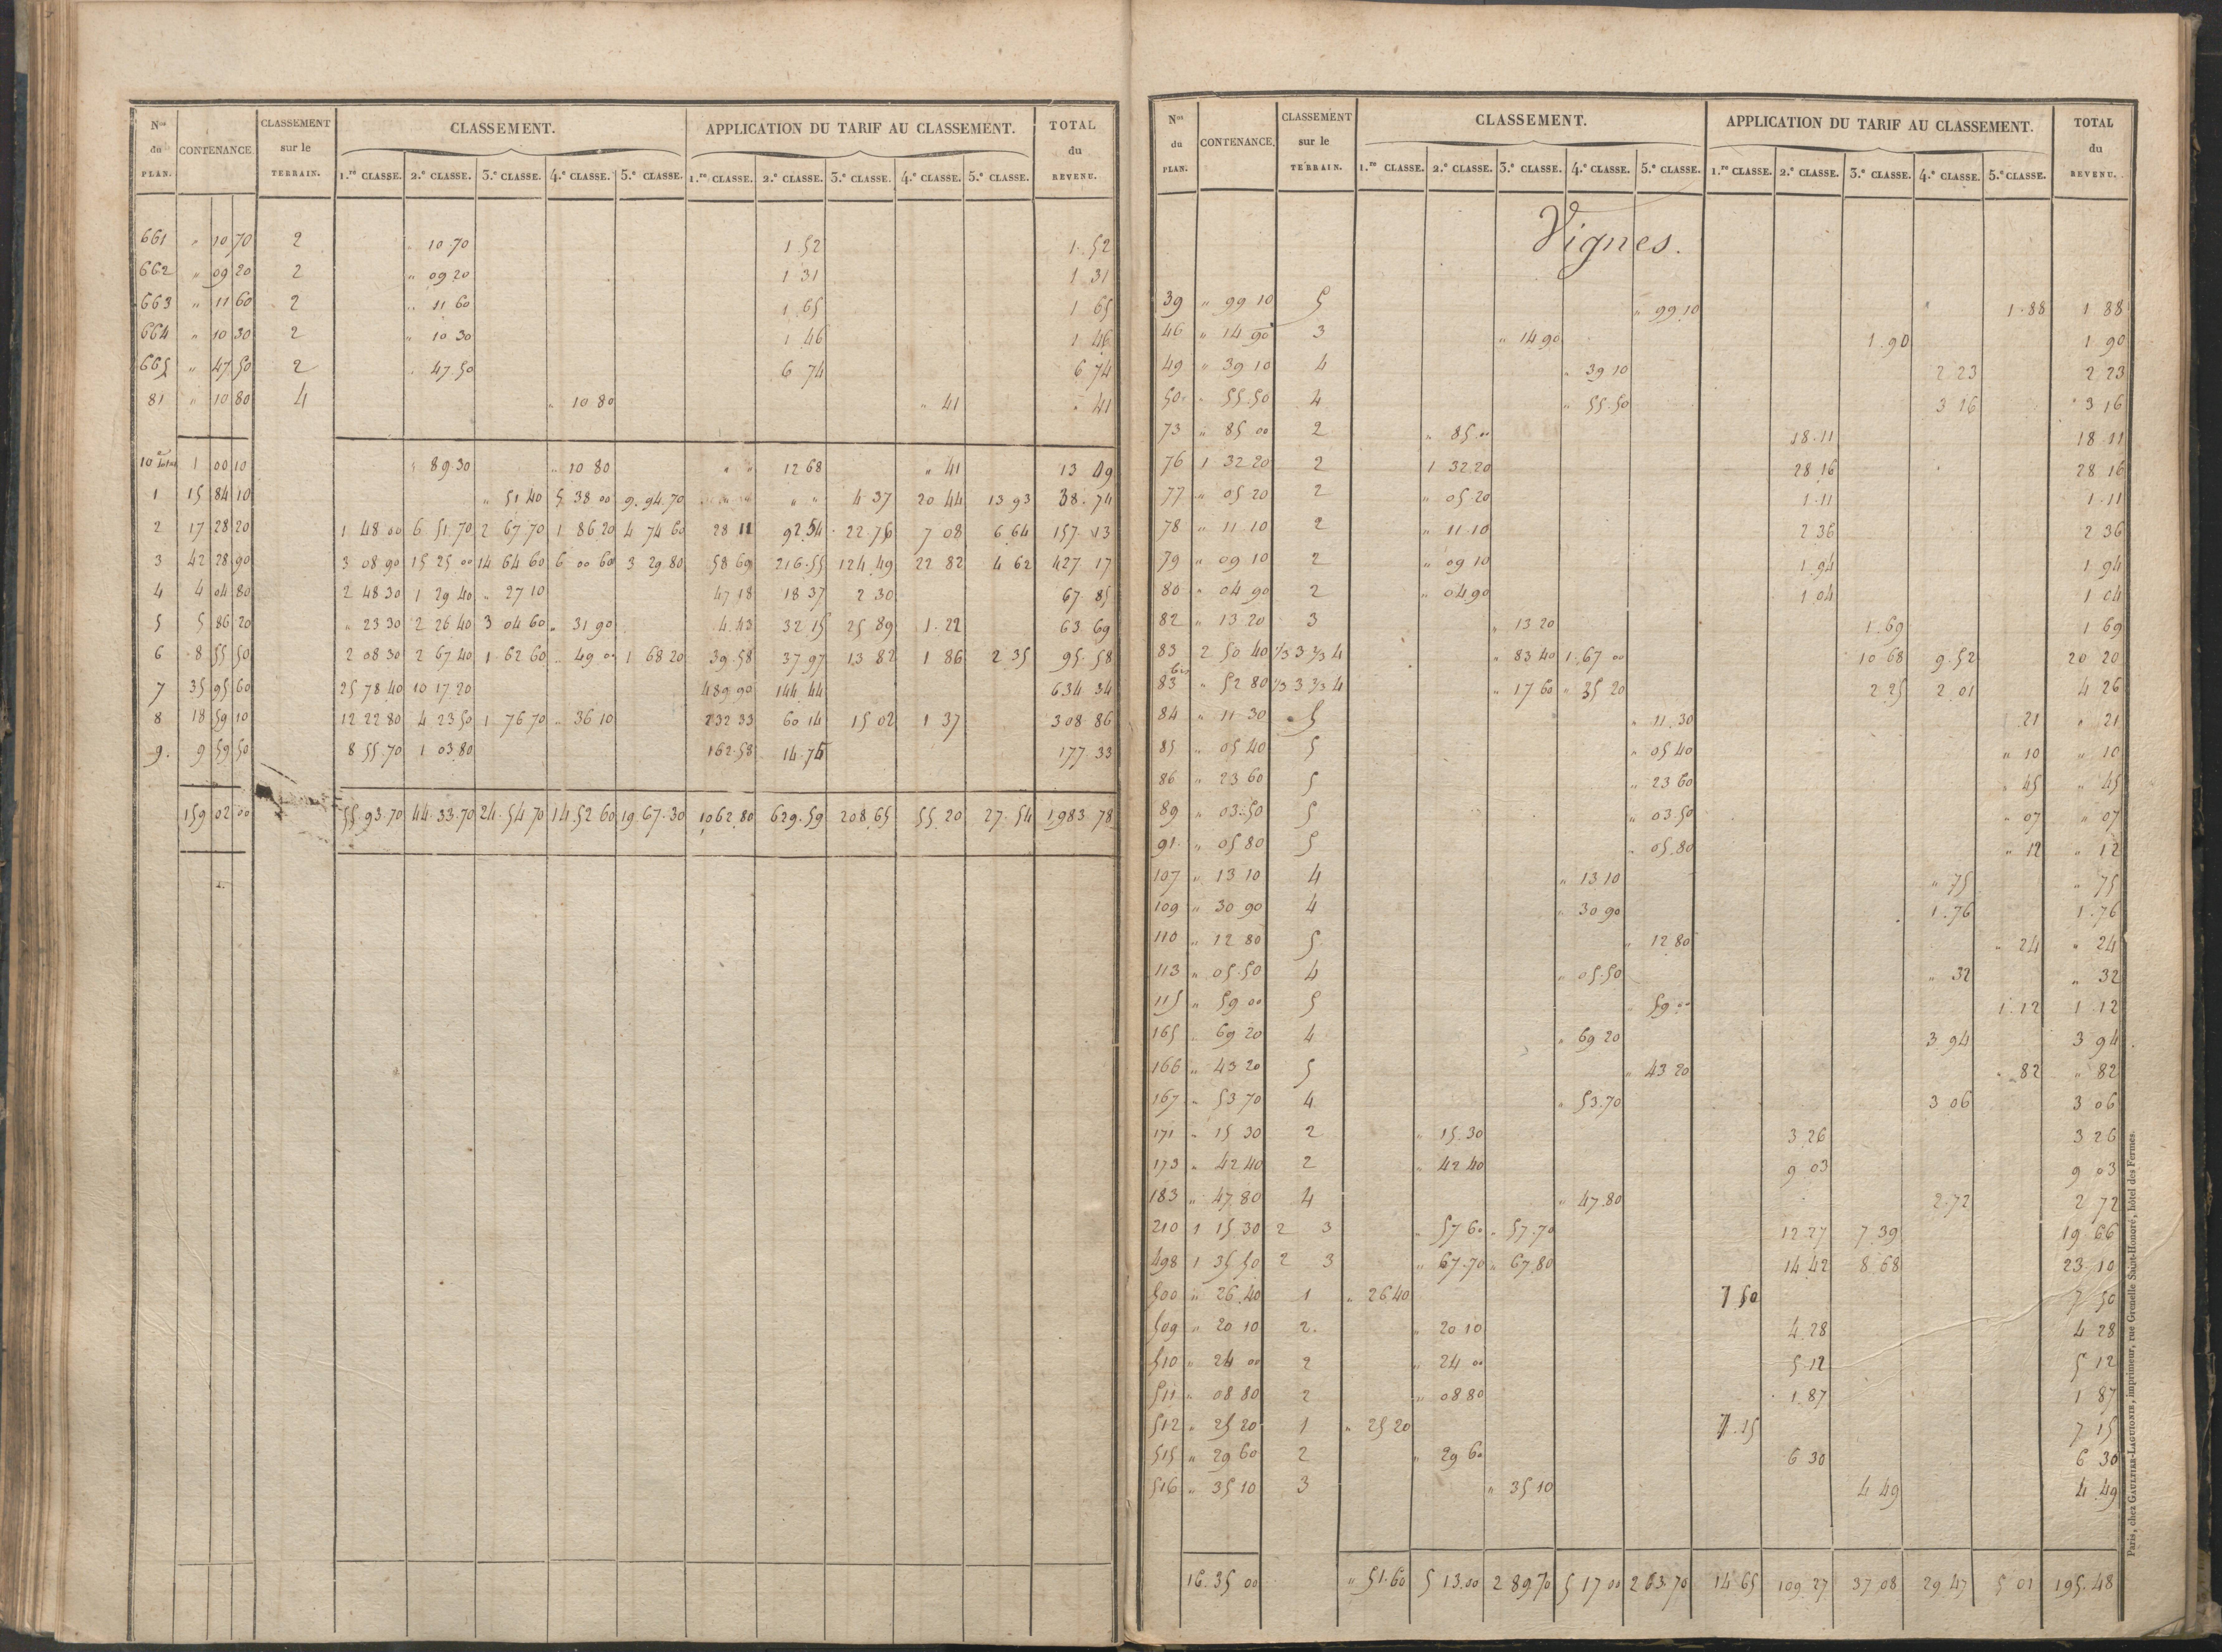 Nos du PLAN. CONTENANCE. CLASSEMENT sur le TERRAIN. CLASSEMENT. APPLICATION DU TARIF AU CLASSEMENT. TOTAL du REVENU.
1.re CLASSE. 2.e CLASSE. 3.e CLASSE. 4.e CLASSE. 5.e CLASSE. 1.re CLASSE. 2.e CLASSE. 3.e CLASSE. 4.e CLASSE. 5.e CLASSE.
661 " 10 70 2 " 10.70 1 52 1.52
662 " 09 20 2 " 09 20 1 31 1 31
663 " 11 60 2 " 11 60 1 65 1 65
664 " 10 30 2 " 10 30 1 46 1 46
665 " 47 50 2 " 47.50 6 74 6 74
81 " 10 80 4 " 10 80 " 41 " 41
10 1 00 10 " 89.30 " 10 80 " " 12 68 " 41 13 09
1 15 84 10 " 51 40 5 38 00 9.94.70 " " " " 4 37 20 44 13 93 38.74
2 17 28 20 1 48 00 6 51.70 2 67 70 1 86 20 4 74 60 28 11 92.54 22.76 7 08 6 64 157 13
3 42 28 90 3 08 90 15 25 00 14 64 60 6 00 60 3 29 80 58 69 216.55 124 49 22 82 4 62 427 17
4 4 04 80 2 48 30 1 29 40 " 27 10 47 18 18 37 2 30 67 85
5 5 86 20 " 23 30 2 26 40 3 04 60 " 31 90 4.43 32 15 25 89 1.22 63 69
6 8 55 50 2 08 30 2 67 40 1 62 60 " 49 00 1 68 20 39.58 37.97 13 82 1 86 2 35 95.58
7 35 95 60 25 78 40 10 17 20 489 90 144 44 634 34
8 18 59 10 12 22 80 4 23 50 1 76 70 " 36 10 232 33 60 14 15 02 1 37 308 86
9. 9 59 50 8 55.70 1 03.80 162.58 14.75 177.33
159 02 00 55 93.70 44.33.70 24.54 70 14.52 60 19 67.30 1062.80 629.59 208 65 55.20 27.54 1983 78
Nos du PLAN. CONTENANCE. CLASSEMENT sur le TERRAIN. CLASSEMENT. APPLICATION DU TARIF AU CLASSEMENT. TOTAL du REVENU.
1.re CLASSE. 2.e CLASSE. 3.e CLASSE. 4.e CLASSE. 5.e CLASSE. 1.re CLASSE. 2.e CLASSE. 3.e CLASSE. 4.e CLASSE. 5.e CLASSE.
Vignes.
39 " 99 10 5 " 99 10 1.88 1 88
46 " 14 90 3 " 14 90 1.90 1 90
49 " 39 10 4 " 39 10 2 23 2 23
50 " 55.50 4 " 55.50 3 16 3 16
73 " 85 00 2 " 85.00 18.11 18 11
76 1 32 20 2 1 32 20 28 16 28 16
77 " 05 20 2 " 05 20 1.11 1.11
78 " 11 10 2 " 11 10 2 36 2 36
79 " 09 10 2 " 09 10 1.94 1 94
80 " 04 90 2 " 04 90 1 04 1 04
82 " 13 20 3 " 13 20 1.69 1 69
83 2 50 40 1/3 3 2/3 4 " 83 40 1.67 00 10 68 9.52 20 20
83 bis " 52 80 1/3 3 2/3 4 " 17 60 " 35 20 2 25 2 01 4 26
84 " 11 30 5 " 11.30 21 " 21
85 " 05 40 5 " 05 40 " 10 " 10
86 " 23 60 5 " 23 60 " 45 " 45
89 " 03.50 5 " 03.50 " 07 " 07
91. " 05 80 5 " 05.80 " 12 " 12
107 " 13 10 4 " 13 10 " 75 " 75
109 " 30 90 4 " 30 90 1.76 1.76
110 " 12 80 5 " 12 80 " 24 " 24
113 " 05.50 4 " 05.50 " 32 " 32
115 " 59 00 5 " 59 00 1.12 1.12
165 " 69 20 4 " 69 20 3 94 3 94
166 " 43 20 5 " 43 20 " 82 " 82
167 " 53 70 4 " 53.70 3 06 3 06
171 " 15 30 2 " 15.30 3.26 3 26
173 " 42 40 2 " 42 40 9 03 9 03
183 " 47.80 4 " 47.80 2.72 2 72
210 1 15.30 2 3 " 57 60 " 57.70 12.27 7.39 19.66
498 1 35 50 2 3 " 67.70 " 67.80 14 42 8 68 23.10
500 " 26.40 1 " 26 40 7 50 7 50
509 " 20 10 2. " 20 10 4.28 4 28
510 " 24 00 2 " 24 00 5 12 5 12
511 " 08 80 2 " 08 80 1.87 1 87
512 " 25 20 1 " 25 20 7.15 7 15
515 " 29 60 2 " 29 60 6 30 6 30
516 " 35 10 3 " 35 10 4 49 4 49
16.35 00 " 51.60 5 13.00 2 89.70 5 17 00 2 63.70 14 65 109.27 37.08 29.47 5 01 195.48
Paris, chez GAULTIER-LAGUIONIE, imprimeur, rue Grenelle Saint-Honoré, hôtel des Fermes.